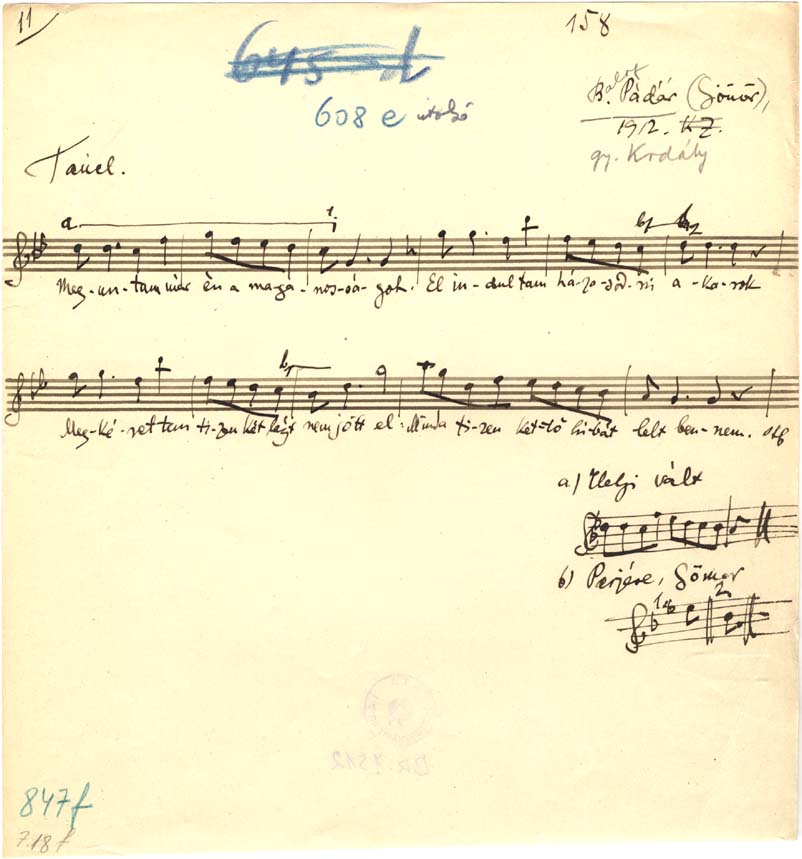 11
158
608 e utolsó
B. Pádár (Gömör),
1912. K Z.
gy. Kodály
Táncl.
a.
1.
Meg-un-tam már én a ma-gá-nos-sá-got. El in-dul tam há-za-sod-ni a-ka-rok
Meg-ké-ret tem ti-zen két lányt nem jött el. Mind a ti-zen ket-tő hi-bát lelt ben-nem. stb
a) Helyi vált
b) Perjése, Gömör
847f
718 f